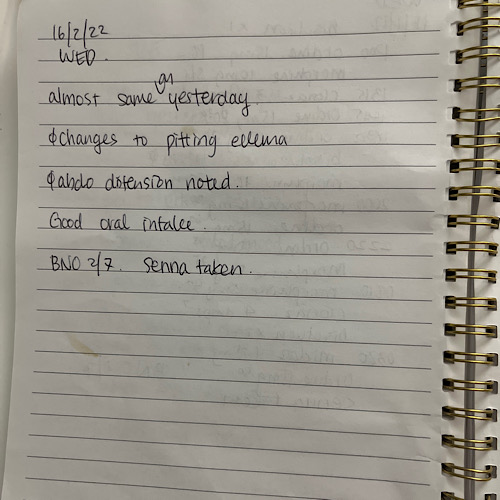 16/2/22
WED.
almost same as yesterday.
∅changes to pitting edema
∅abdo distension noted.
Good oral intake.
BNO 2/7. Senna taken.